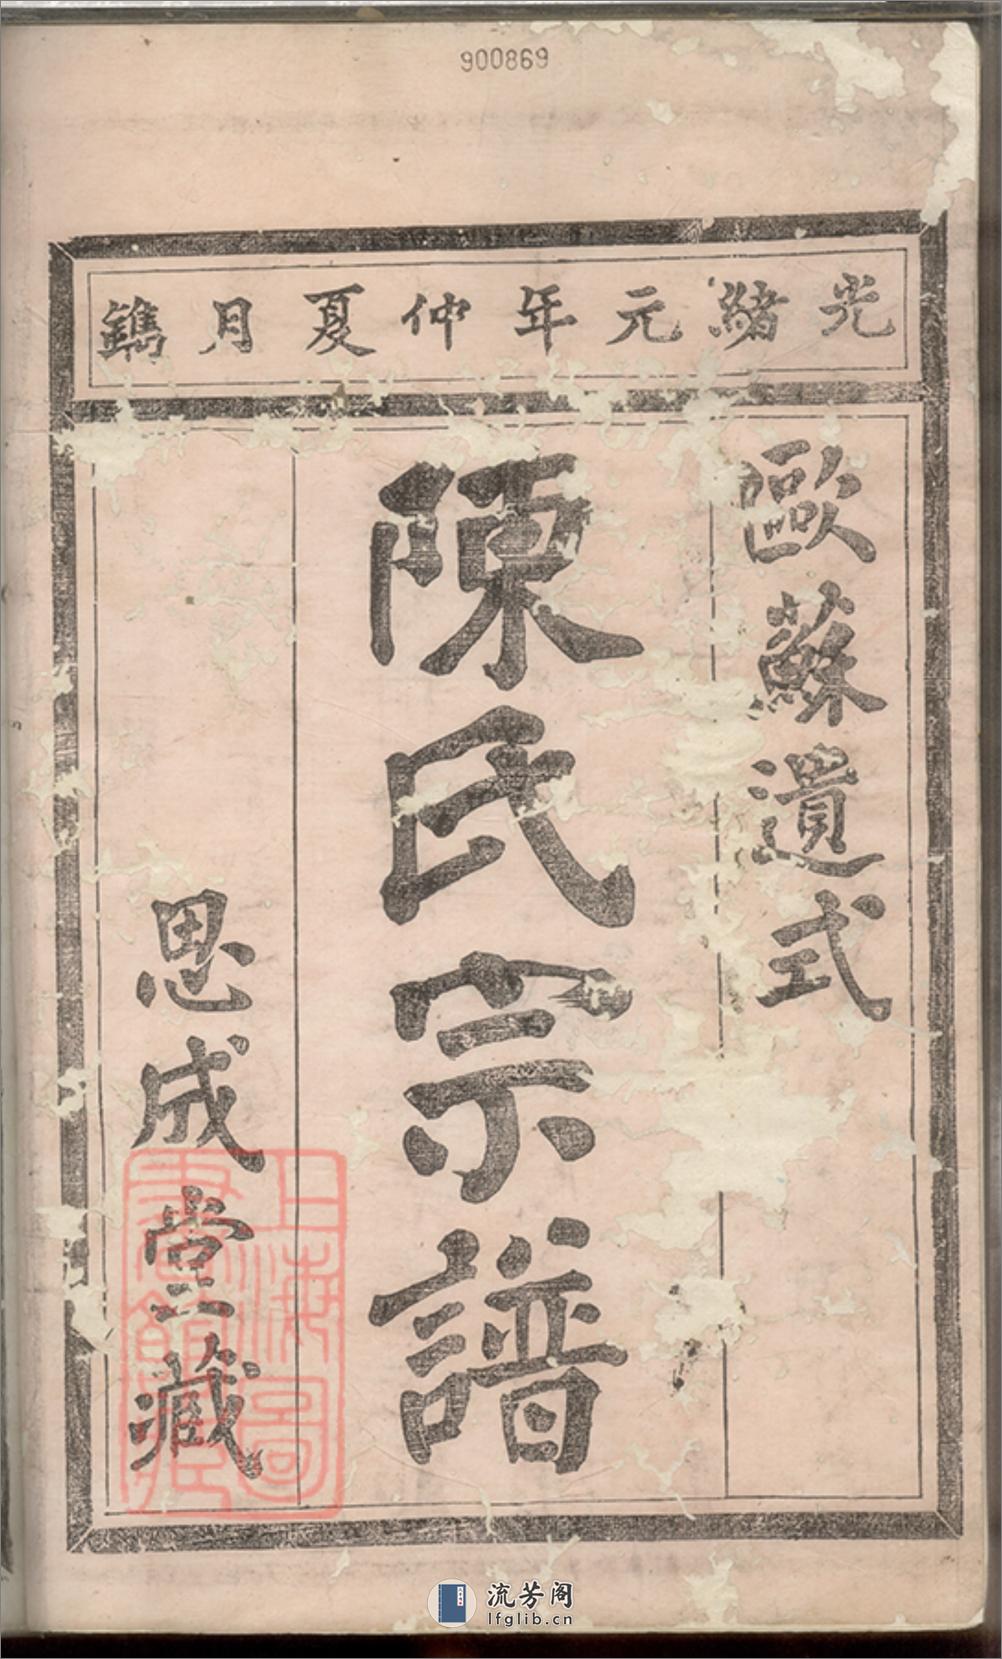 900869
光緒元年仲夏月鐫
歐蘇遺式
陳氏宗譜
思成堂藏
上海圖
書館藏
流芳阁
lfglib.cn